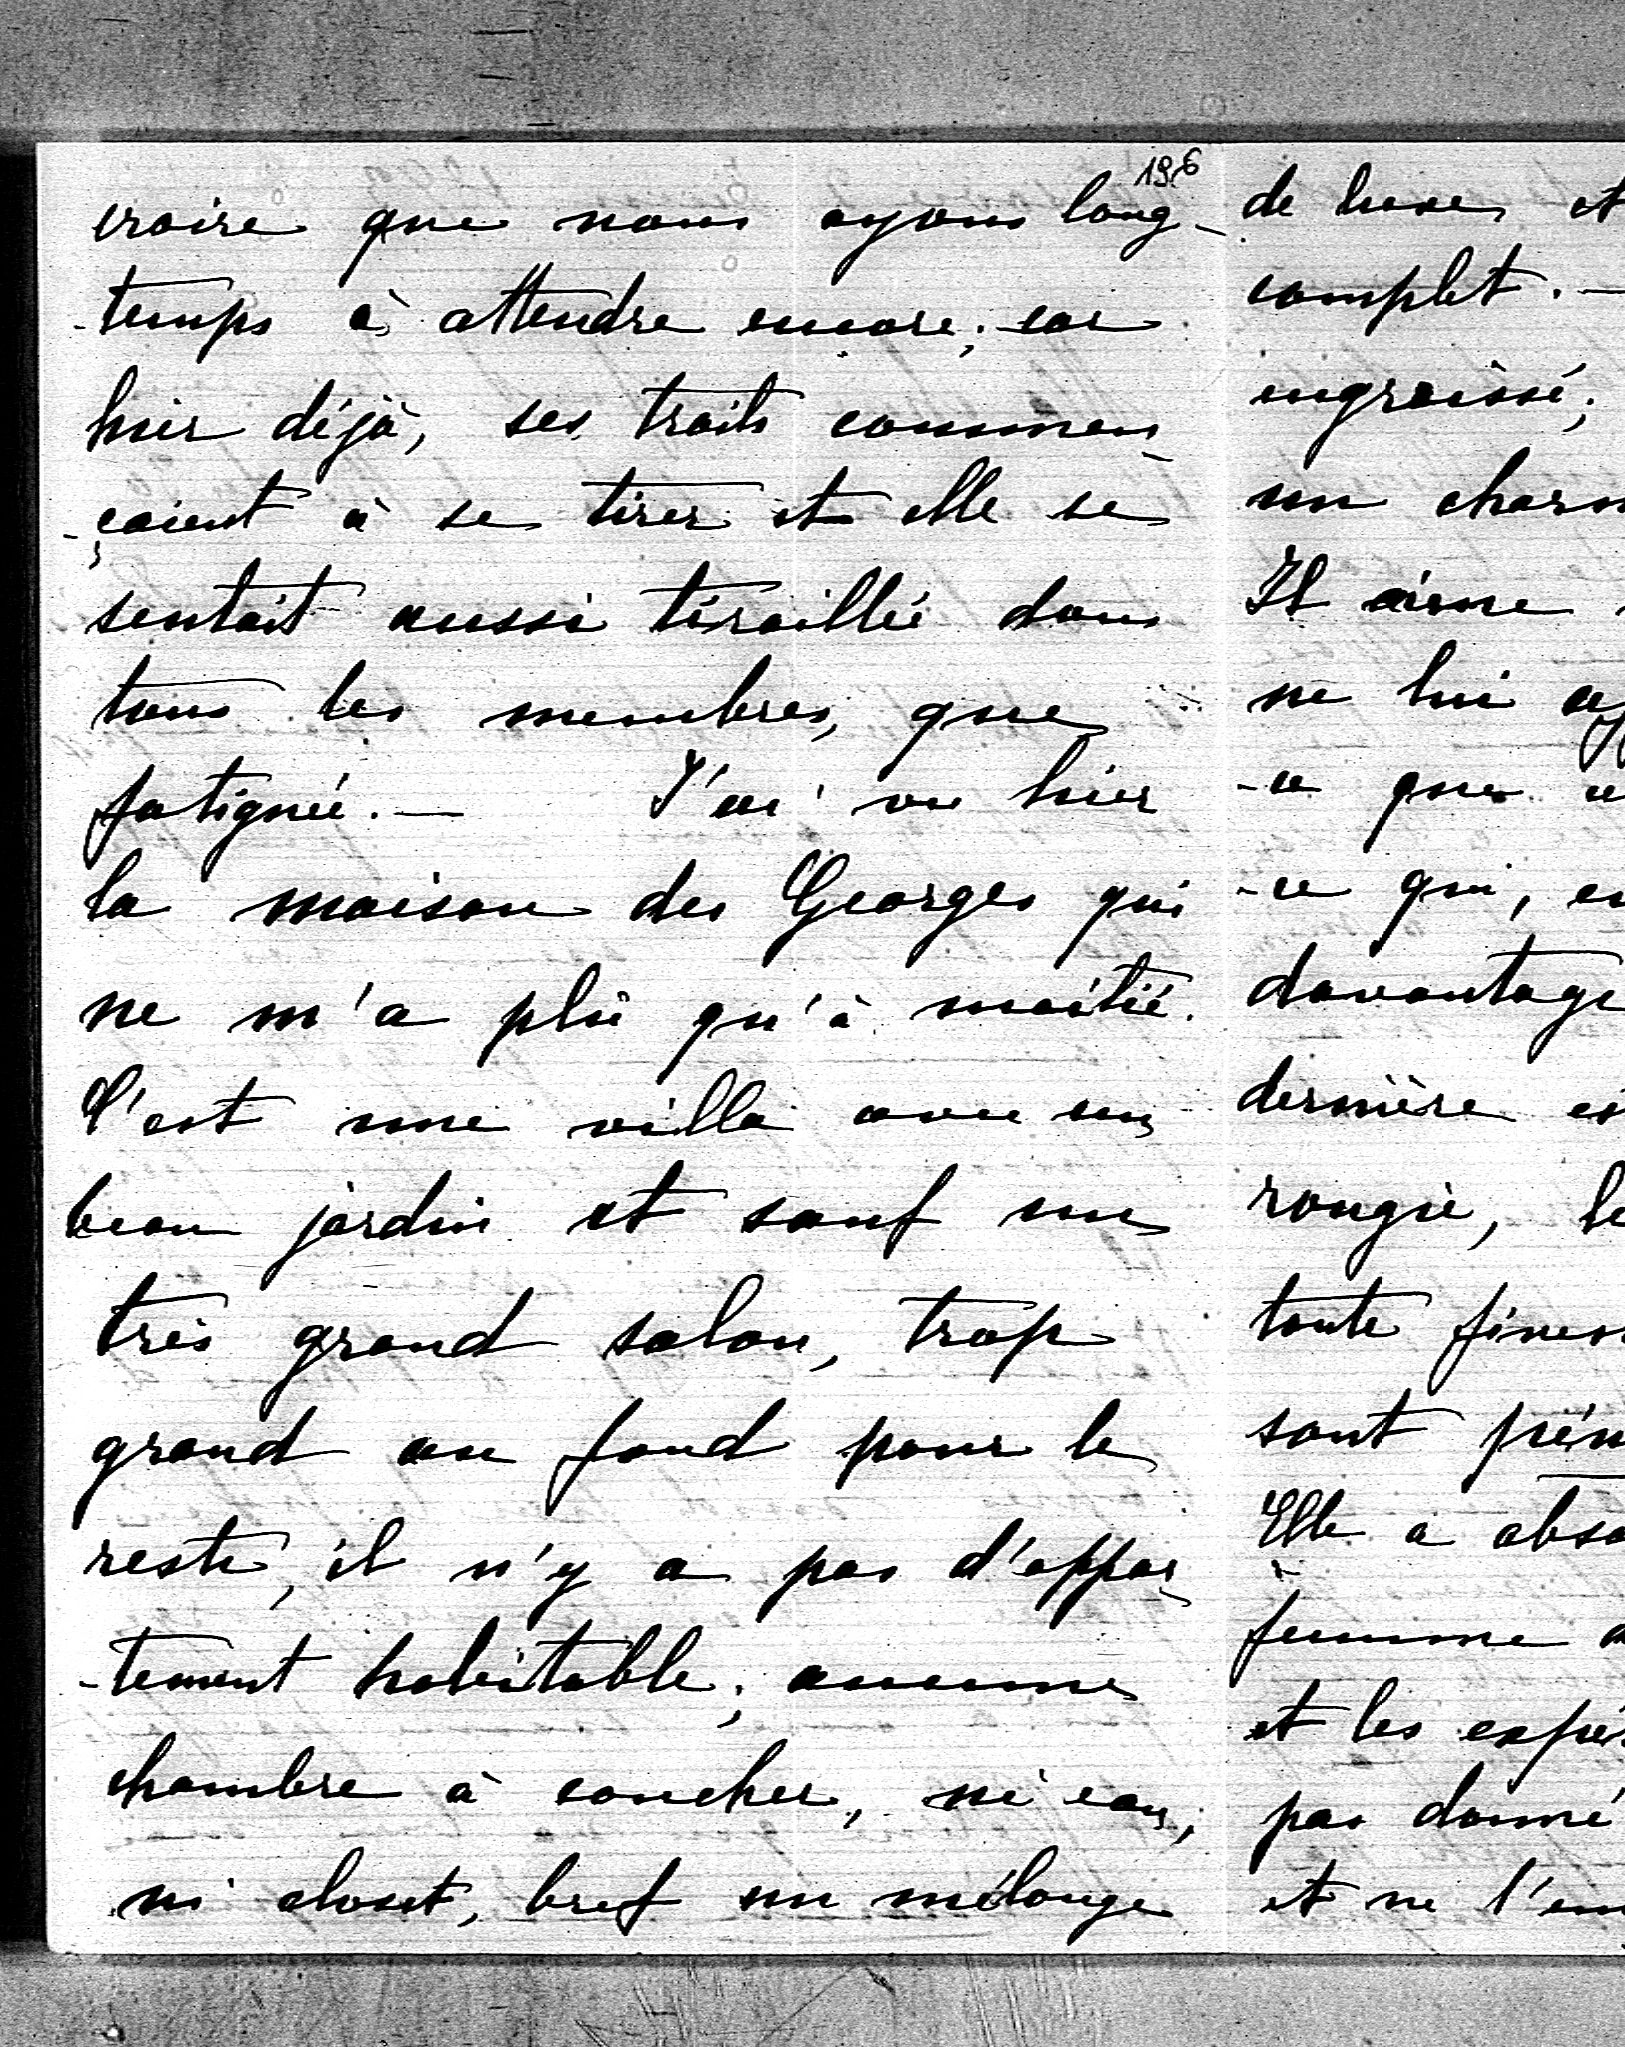 196
croire que nous ayons long-
-temps à attendre encore; car
hier déjà, ses traits commen-
-çaient à se tirer et elle se
sentait aussi tiraillée dans
tous les membres, que
fatiguée. — J'ai vu hier
la maison des Georges qui
ne m'a plu qu'à moitié.
C'est une villa avec un
beau jardin et sauf un
très grand salon, trop
grand au fond pour le
reste, il n'y a pas d'appar-
-tement habitable; aucune
chambre à coucher, ni eau,
ni closet, bref un mélange
de luxe et
complet. —
engraissé;
un charm
Il aime
ne lui
-ce que
-ce qui, en
davantage
dernière es
rougie, le
toute fines
sont
Elle a abso
femme
et les expé
pas donné
et ne l'em